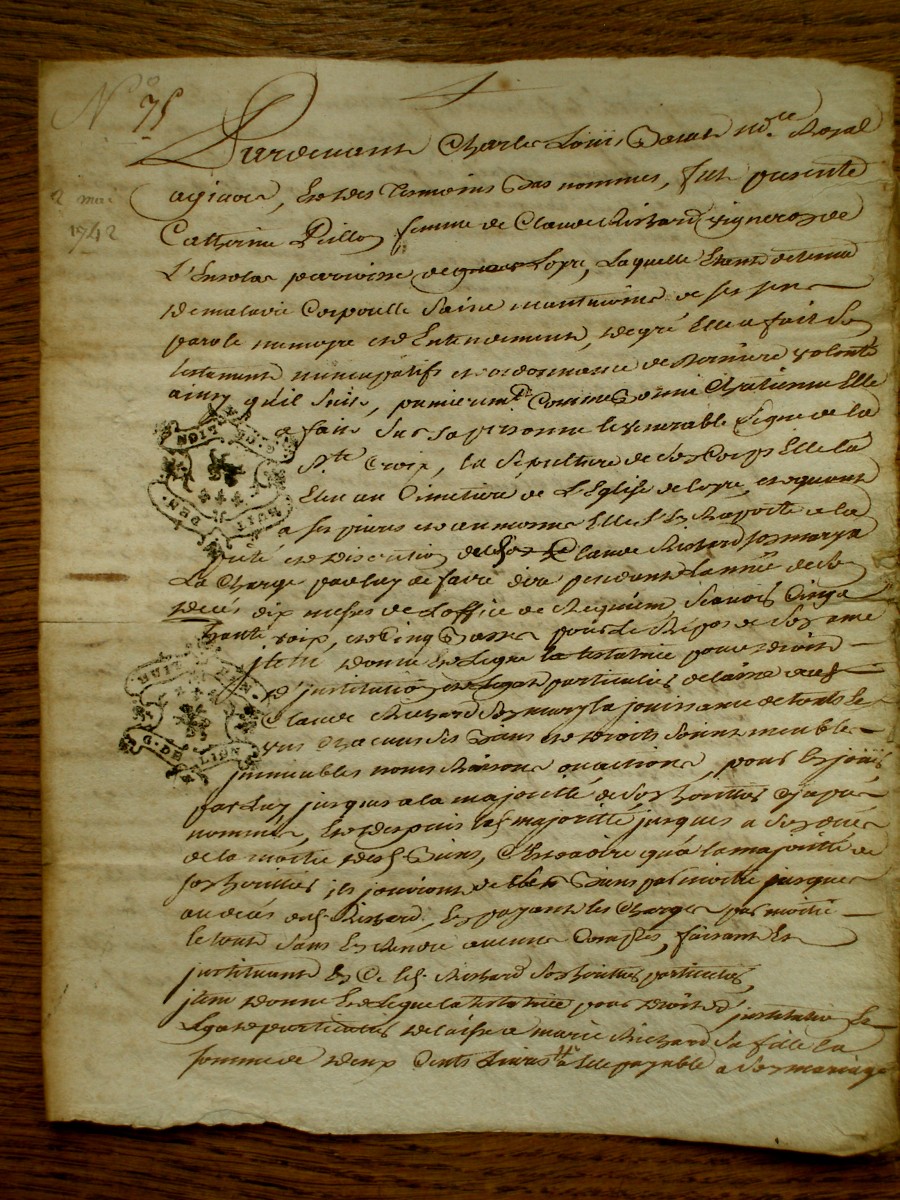 N° 75
2 mai
1742
Pardevant Charle Loüis not.re Royal
a givors, et des temoins bas nommes, fut presente
Catherine Pillon femme de Claude Richard vigneron de
parroisse de Loyre, Laquelle Etant detenüe
de maladie Corporelle saine neantmoins de ses sens
parole memoyre et Entendement, de gré Elle a fait son
testament nuncupatif et ordonnance de derniere volonté
ainsy qu'il suit, premierem.t Comme bonne Chretienne Elle
a fait sur sa personne le venerable signe de la
S.te Croix, la sepulture de son Corps Elle la
Elue au Cimetiere de L'Eglise de Loyre, et quant
a ses prieres et aumones Elle s'En Raporte a la
pieté et discretion Claude Richard son mary a
La Charge par luy de faire dire pendant l'année de son
deces dix messes de L'office de Requiem sçavoir Cinq a
haute voix, et Cinq basses pour le Repos de son ame
jtem donne et Legue la testatrice pour droit
d'jnstitution et Legat particulier delaisse aud.
Claude Richard son mary la jouissance de touts et
uns chacuns ses biens et droits soient meubles
jmmeubles noms Raisons ou actions, pour En jouir
par Luy jusques a la majorité de son heritier cy apres
nommé, et depuis lad. majorité jusques a son deces
de la moitié desd. biens, C'Est a dire qu'a la majorité de
son heritier ils jouiront desd. biens par moitié jusques
au deces dud. Richard, En payant les Charges par moitié
le tout sans En Rendre aucuns Comptes, faisant et
jnstituant En Ce led. Richard son heritier particulier,
jtem donne et Legue la testatrice pour droit d'jnstitution et
Legat particulier delaisse a marie Richard sa fille la
somme de deux Cents Livres a Elle payable a son mariage